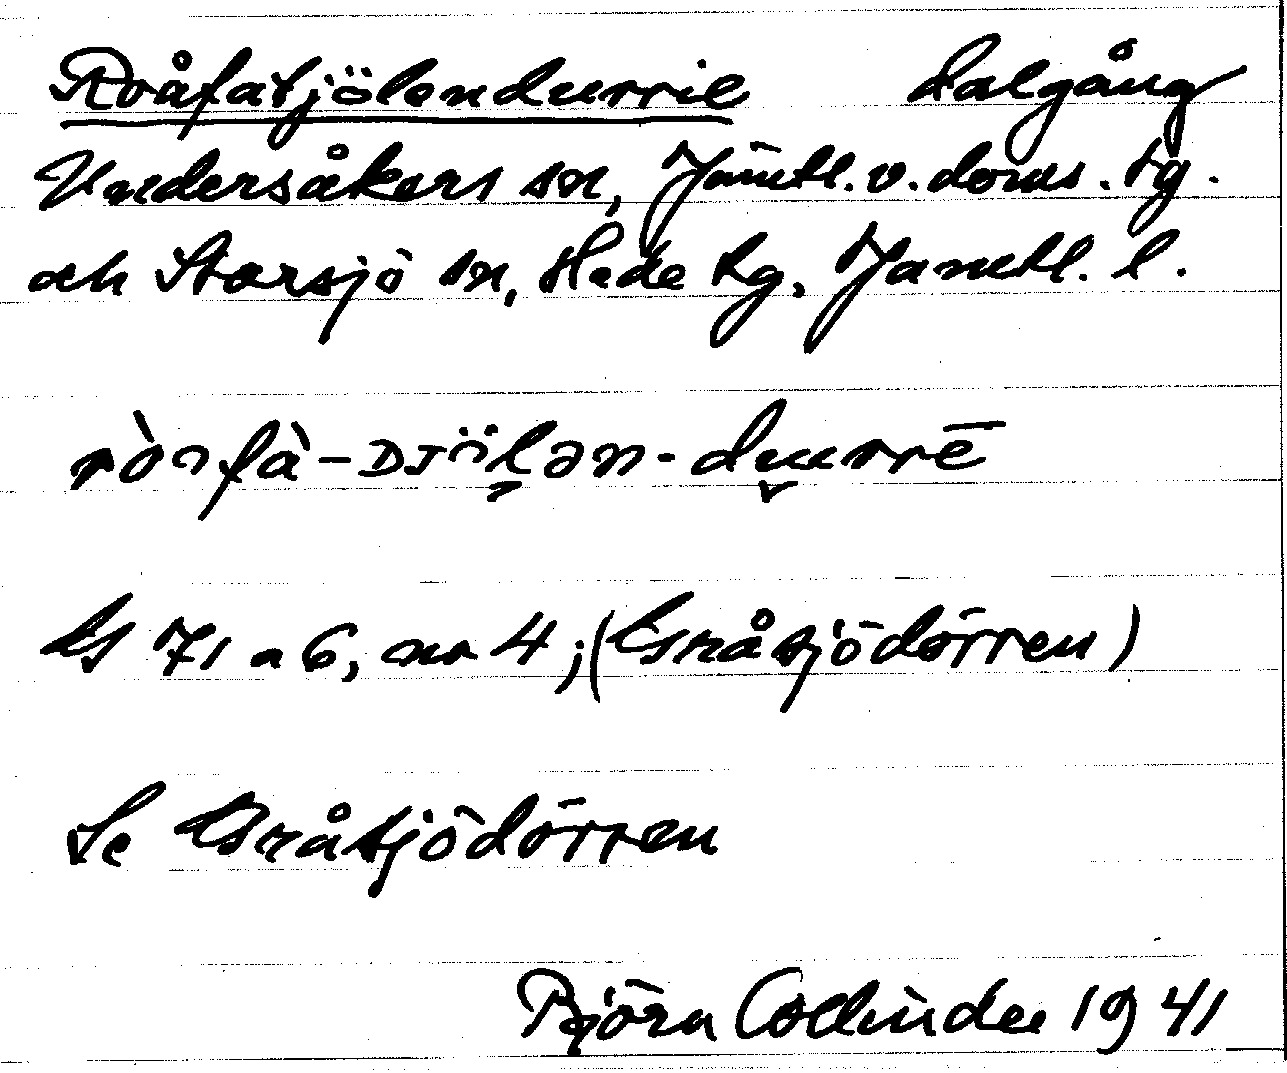 Råfatjölendurrie dalgång
Undersåkers sn, Jämtl. v. doms. tg.
och Storsjö sn, Hede tg, Jämtl. l.
-ᴅᴊöl̥ən-du̬rrē
GS 71 a 6, nr 4; (Gråsjödörren)
Se Gråsjödörren
Björn Collinder 1941